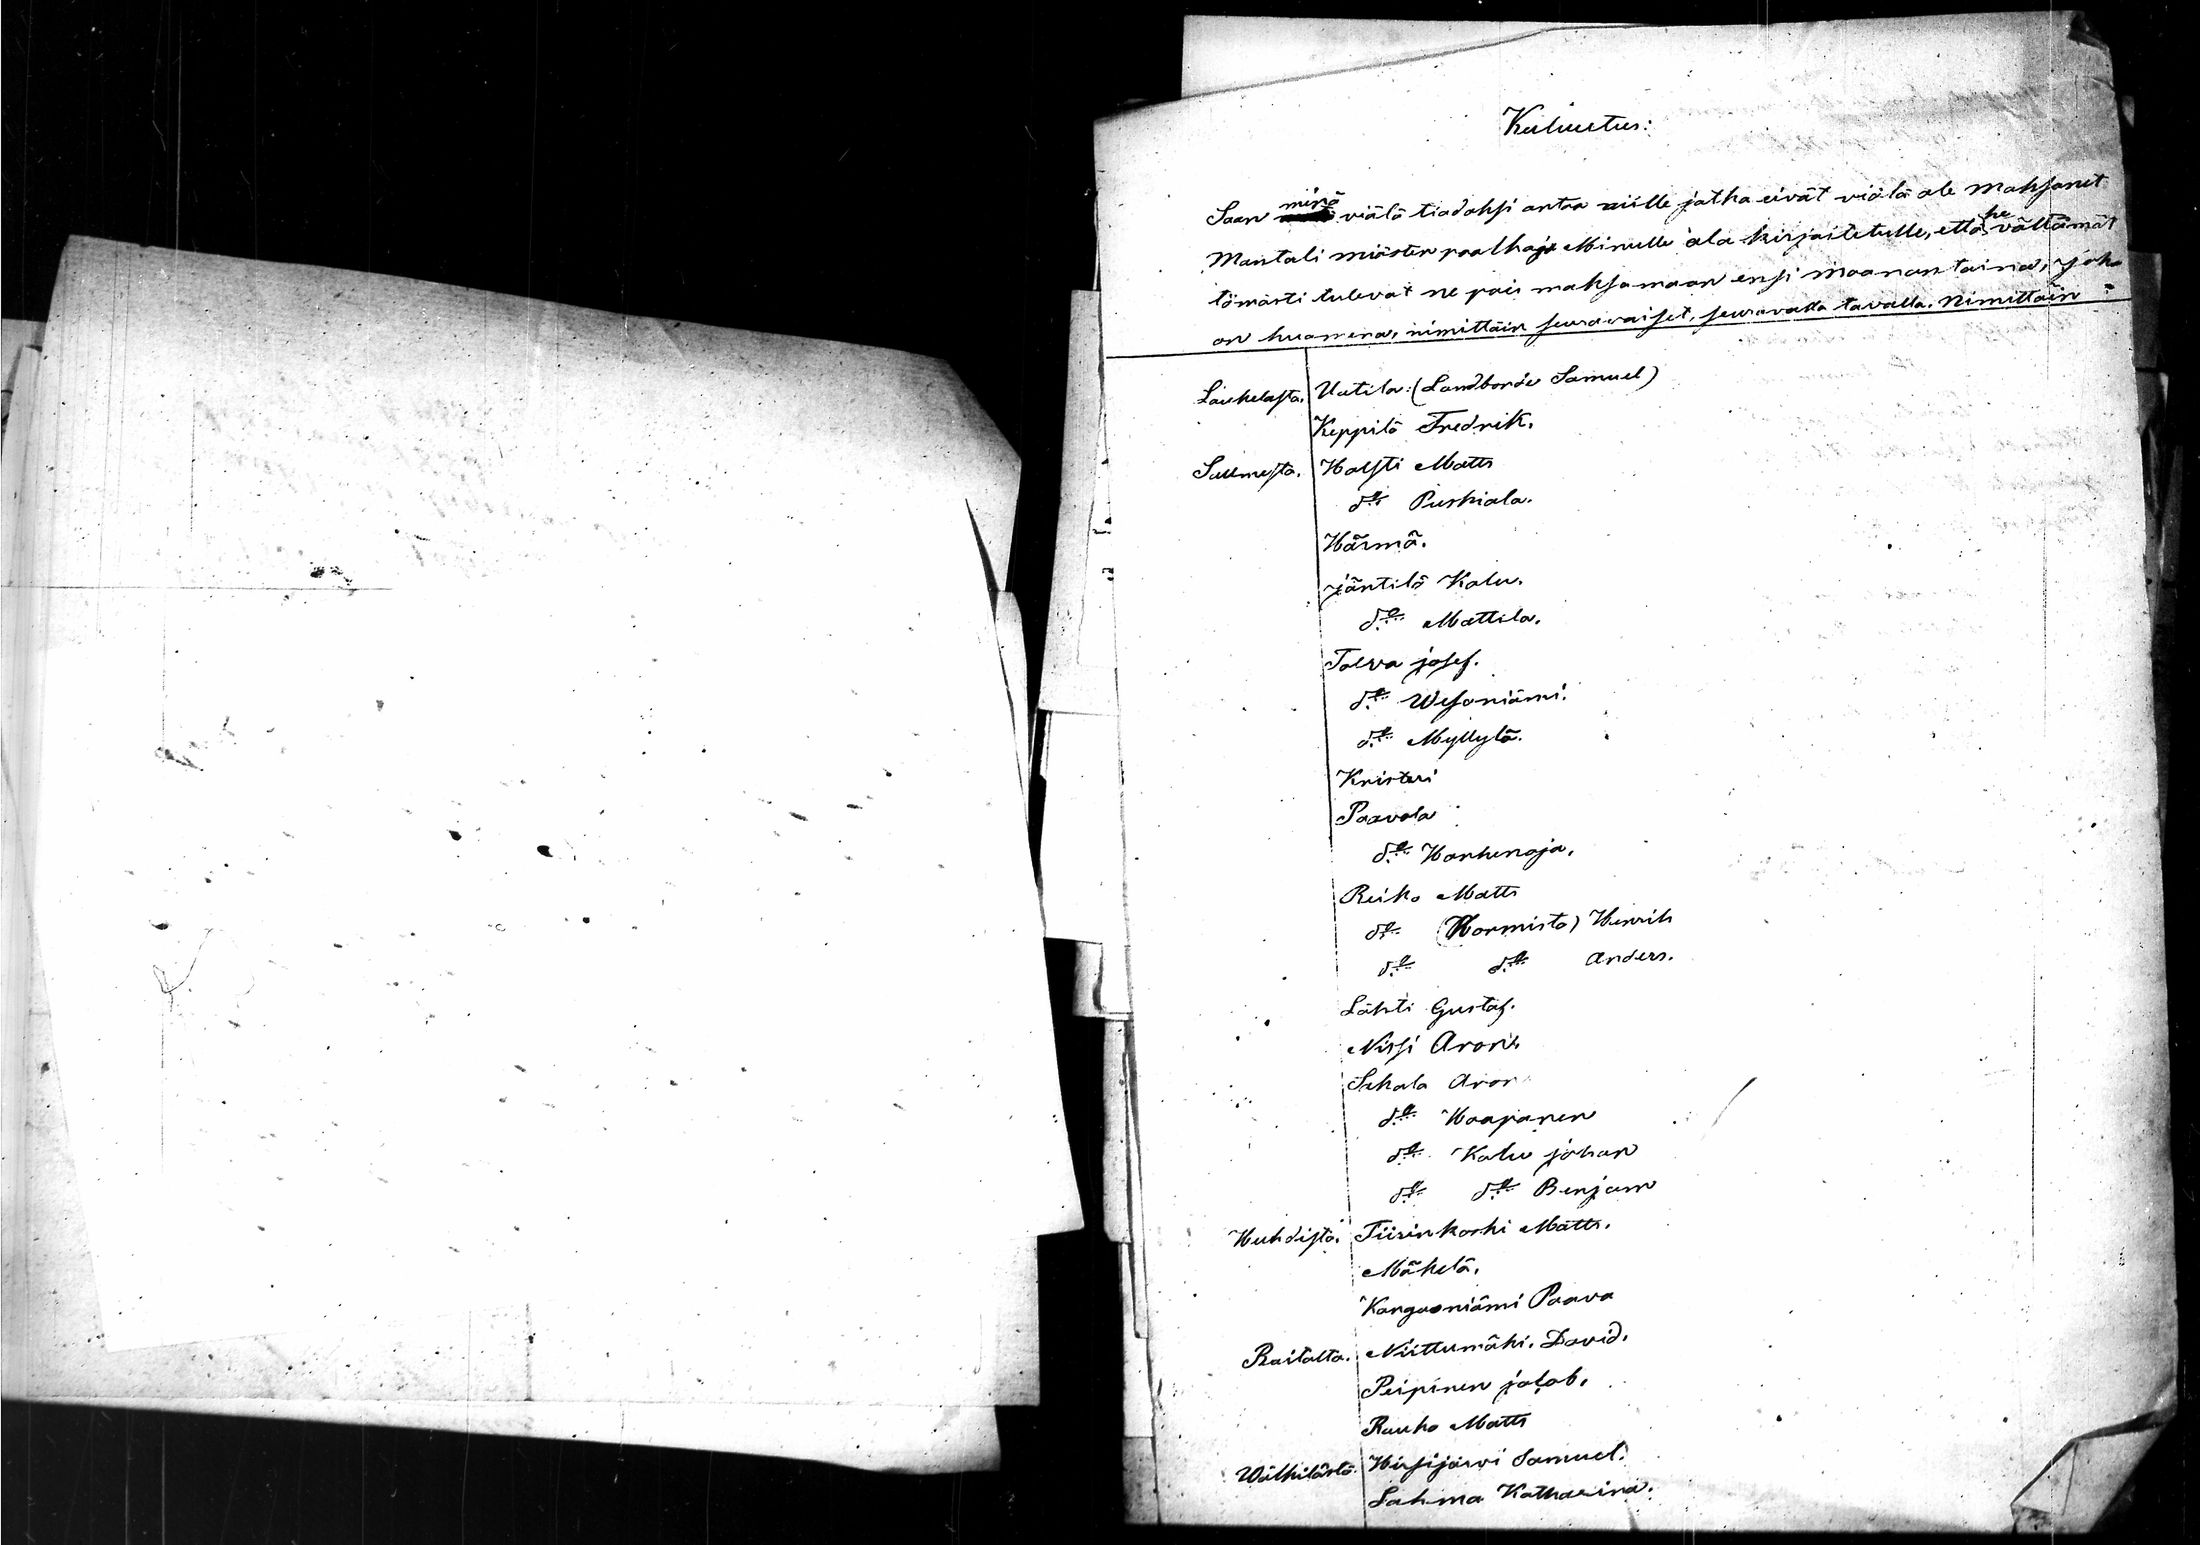 Kuluutus:
Saan minä viälä tiadoksi antaa niille jotka eivät viälä ole maksanet
Mantali miästen paalkoja Minulle ala kirjoitetulle, että he vältämät
tömästi tulevat ne pois maksamaan ensi maanantaina, joka
on huamena, nimittäin seuravaiset, seuravalla tavalla. Nimittäin :
Laukelasta. Uutila: (Landbonde Samuel)
Keppilä Fredrik.
Sullmesta. Halsti Matts
d:o Puskiala.
Härmä.
jäntilä Kalu.
d:o Mattila.
Talva josef.
d:o Wesaniämi.
d:o Myllylä.
Kristeri
Paavola
d:o Hanhenoja.
Reiko Matts
d:o (Hormisto) Henrik
d:o d:o Anders.
Lähti Gustaf.
Nissi Aron
Sukala Aron
d:o Haapanen
d:o Kalu johan
d:o d:o Benjam
Huhdista. Tiirinkoski Matts.
Mäkelä.
Kangasniämi Paavo
Raitalta. Niittumäki. David.
Peipinen jakob.
Rauko Matts
Wälkilästä. Hirsijärvi Samuel.
Lahma Katharina.